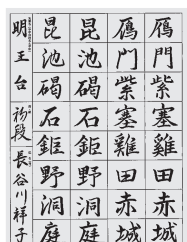 鴈門紫塞雞田赤城
鴈門紫塞雞田赤城
昆池碣石鉅野洞庭
昆池碣石鉅野洞庭
明王台 初段 長谷川祥子